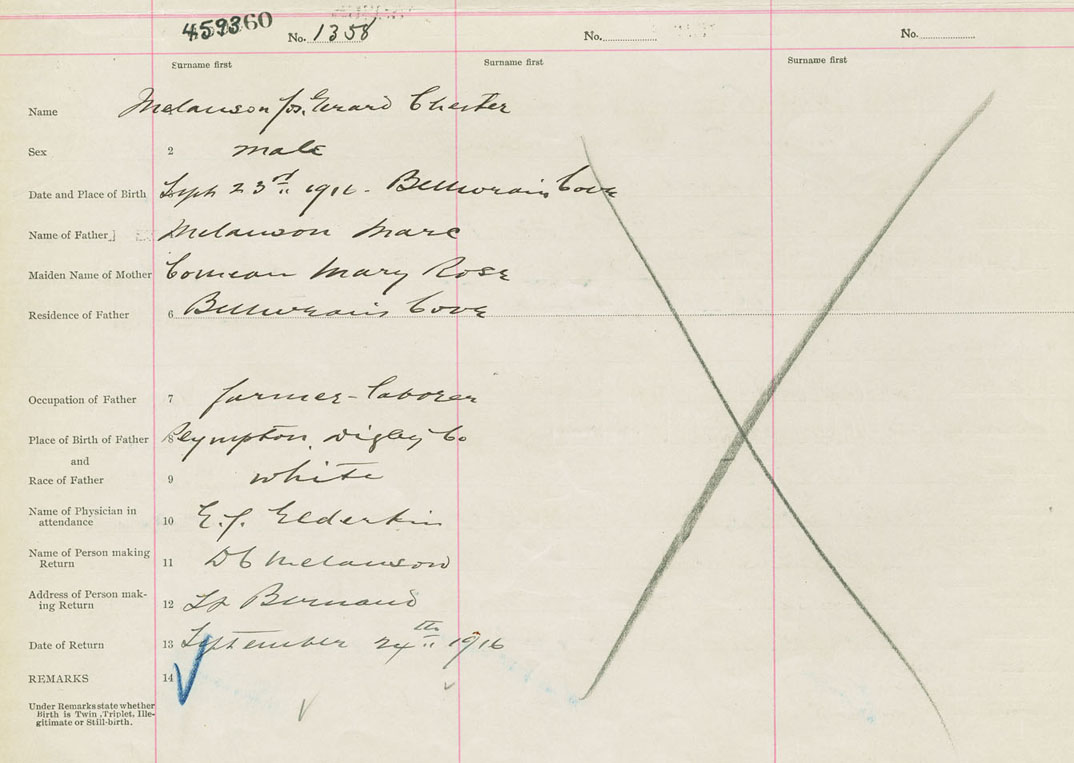 45936O No. 1358 No. No.
Surname first Surname first Surname first
Name Melanson Jos. Gerard Chester
Sex 2 male
Date and Place of Birth Sept 23rd 1916 - Belliveau's Cove
Name of Father Melanson Marc
Maiden Name of Mother Comeau Mary Rose
Residence of Father 6 Belliveau's Cove
Occupation of Father 7 farmer-laborer
Place of Birth of Father 8 Plympton, Digby Co
and
Race of Father 9 white
Name of Physician in
attendance 10 E. J. Elderkin
Name of Person making
Return 11 D C Melanson
Address of Person mak-
ing Return 12 St Bernard
Date of Return 13 September 24th 1916
REMARKS 14
Under Remarks state whether
Birth is Twin, Triplet, Ille-
gitimate or Still-birth.